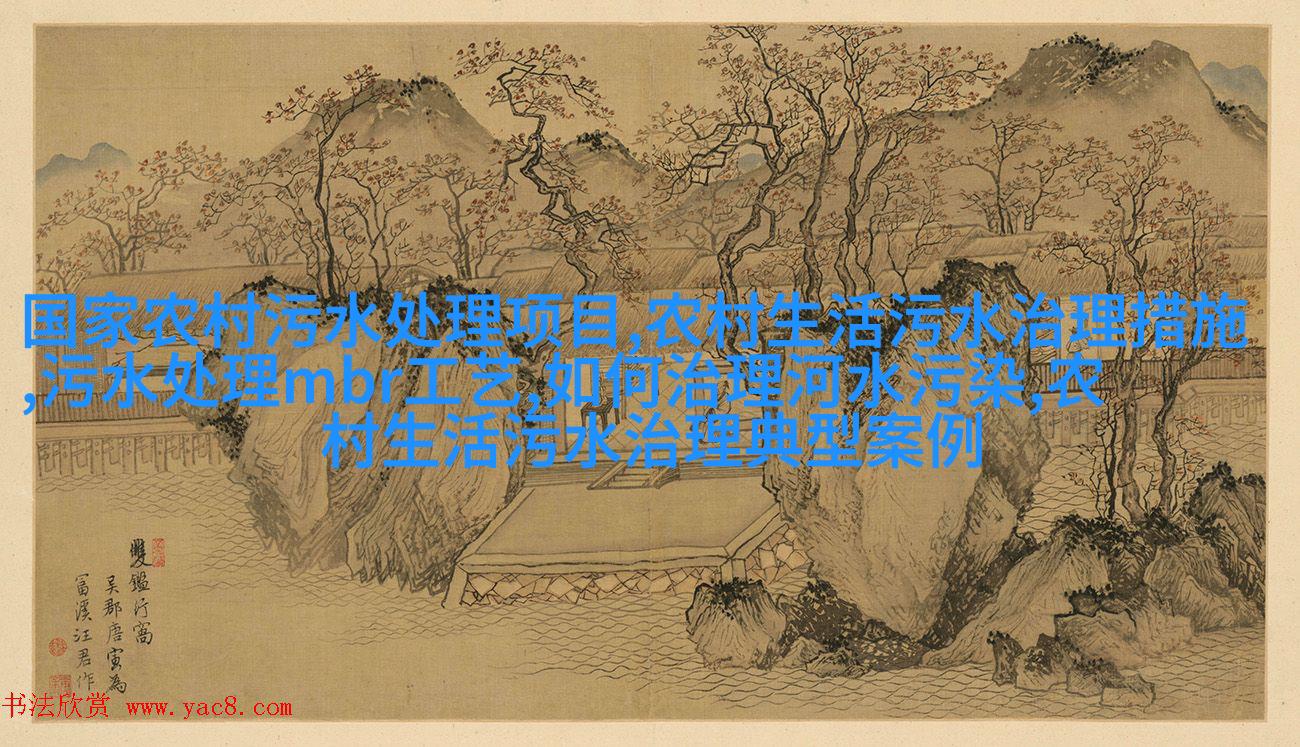 国家农村污水处理项目,农村生活污水治理措施
,污水处理mbr工艺,如何治理河水污染,农
村生活污水治理典型案例
雙鑑行窩
吴郡唐寅為
富溪汪君作
书法欣赏 www.yac8.com